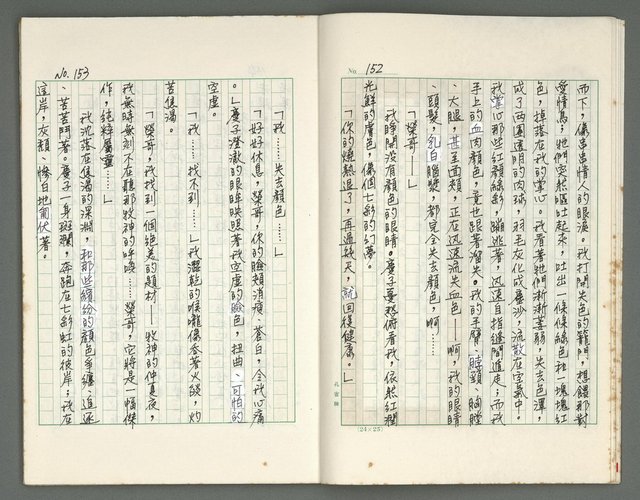 No. 152
而下,像串串情人的眼淚。我打開失色的籠門,想餵那對
愛情鳥;牠們突然嘔吐起來,吐出一條條綠色和一塊塊紅
色,掉落在我的掌心。我看著牠們漸漸萎弱,失去色澤,
成了兩團透明的肉球,羽毛灰化成塵沙,流散在空氣中。
我掌心那些紅顏綠彩,蹦逃著,迅速自指縫間遁走;而我
手上的血肉顏色,竟也跟著溜失。我的手臂、脖頸、胸膛
、大腿,甚至面頰,正在迅速流失血色——啊,我的眼睛
、頭髮,乳白腦漿,都完全失去顏色,啊……
「榮哥——」
我睜開沒有顏色的眼睛。慶子憂愁俯看我,依然紅潤
光鮮的膚色,像個七彩的幻夢。
「你的燒熱退了,再過幾天,就回復健康。」
孔雀牌
(24×25)
No. 153
「我……失去顏色……」
「好好休息,榮哥,你的臉頰消瘦、蒼白,令我心痛
。」慶子澄澈的眼眸映照著我空虛的臉色,扭曲、可怕的
空虛。
「我……找不到……」我澀乾的喉嚨像吞著火燄,灼
苦焦渴。
「榮哥,我找到一個絕美的題材——牧神的仲夏夜,
我無時無刻不在聽那牧神的呼喚……榮哥,它將是一幅傑
作,純粹屬靈……」
我沉落在焦渴的深淵,和那些繽紛的顏色爭纏、追逐
、苦苦鬥著。慶子一身斑斕,奔跑在七彩虹的彼岸;我在
這岸,灰頹、慘白地匍伏著。